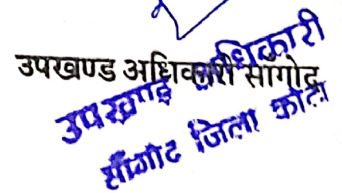 उपखण्ड अधिकारी सॉगोद
उपखण्ड अधिकारी
सॉगोद जिला कोटा